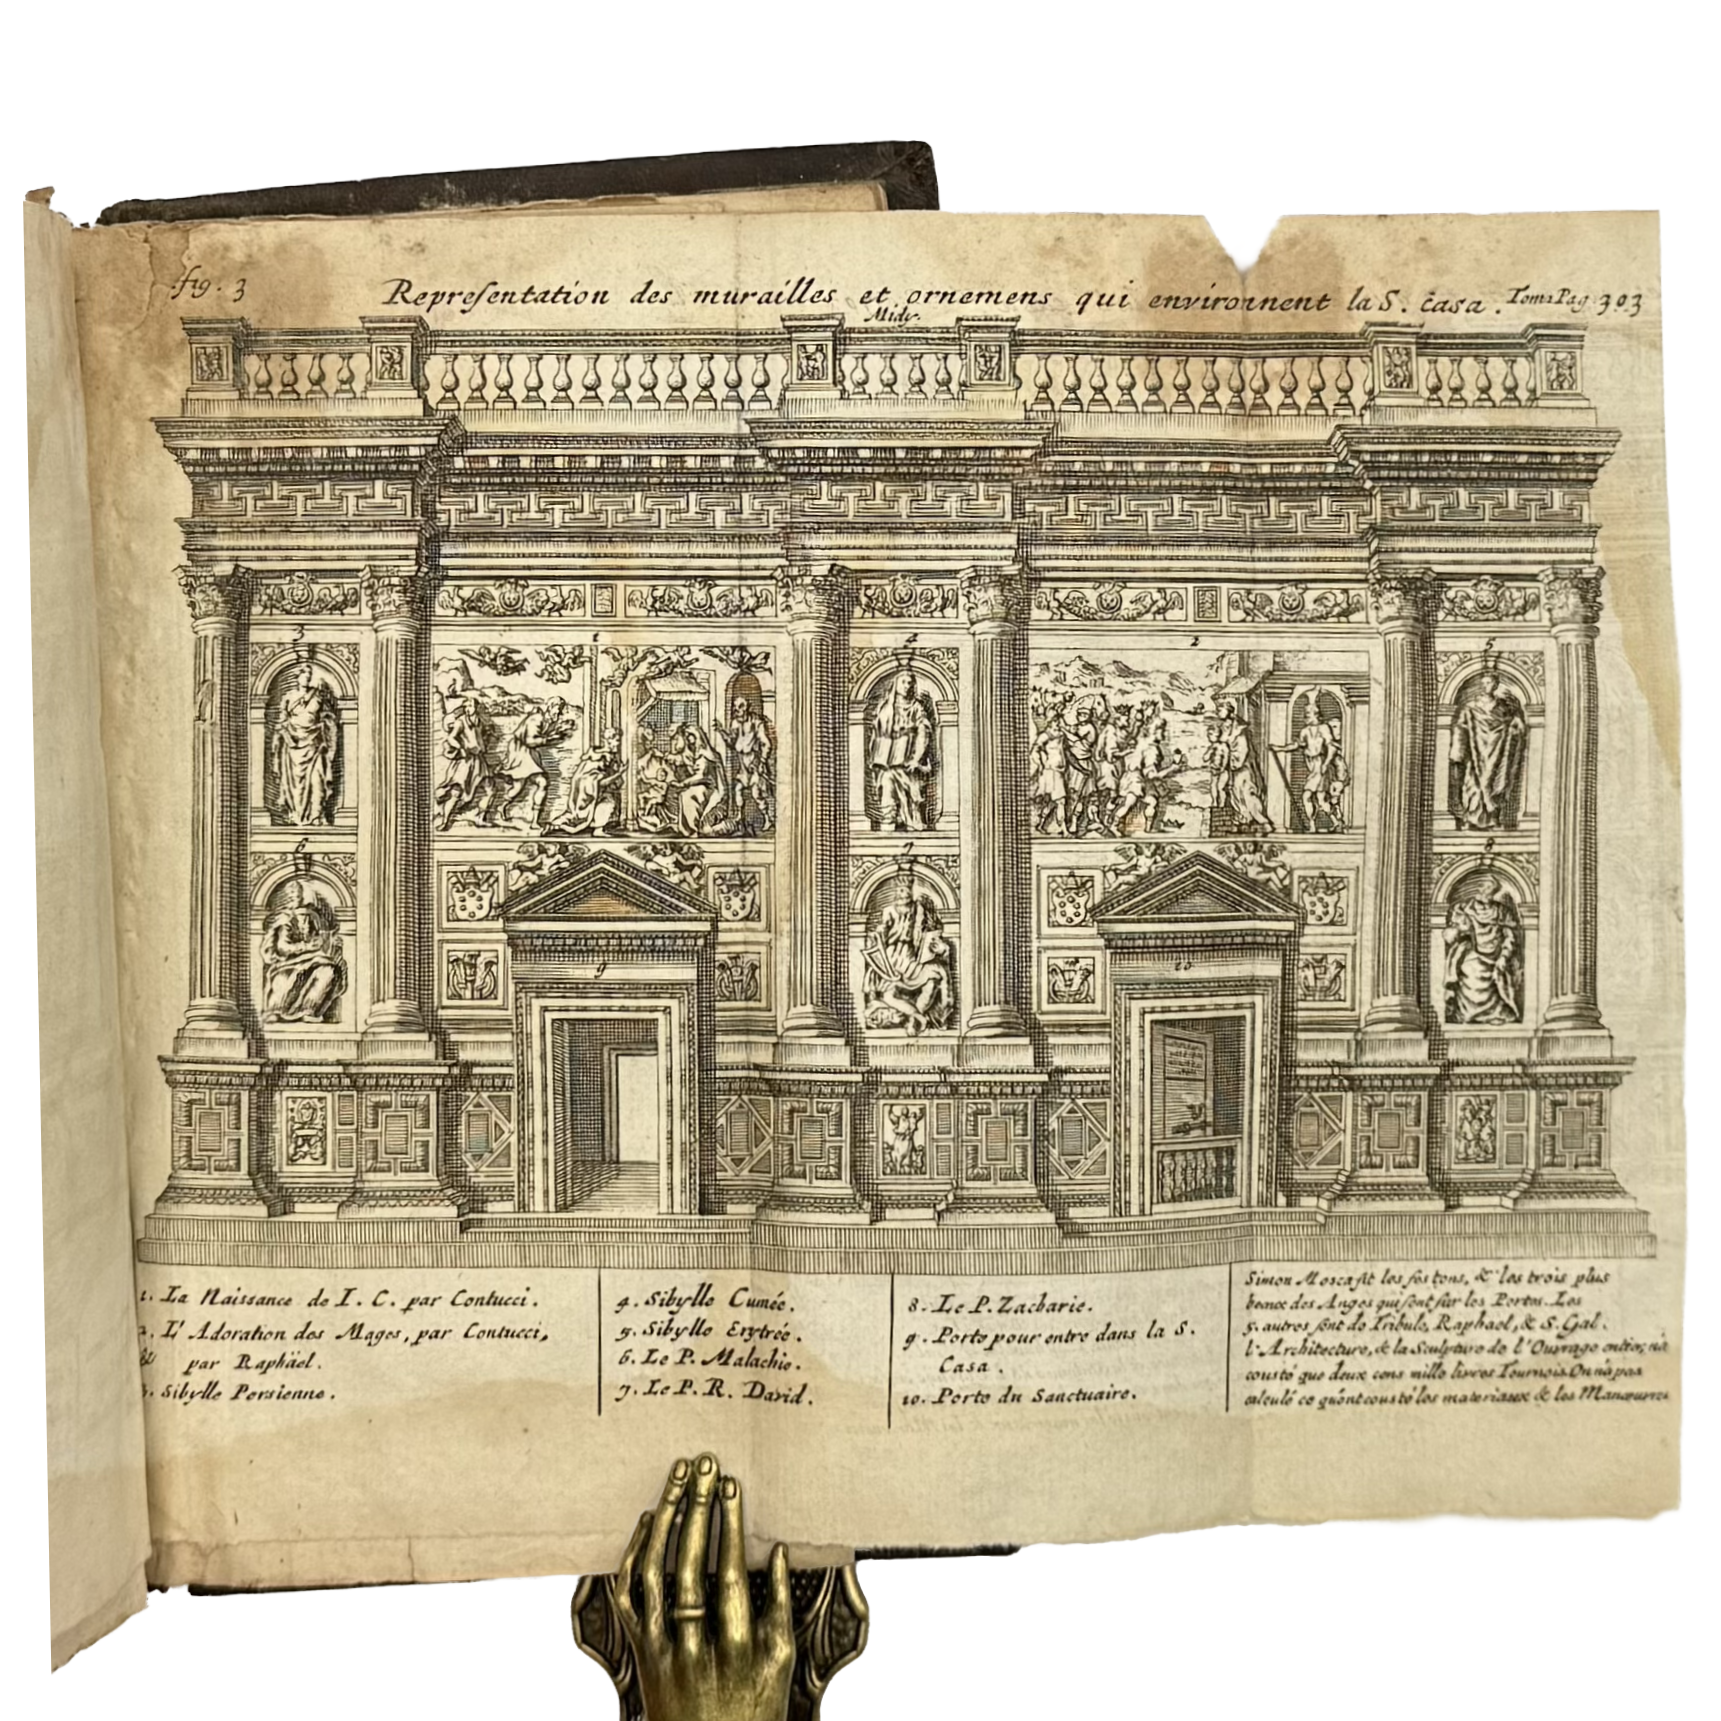 fig. 3
Representation des murailles et ornemens qui environnent la S. casa. Tom 1 Pag 303
Midy.
3
1
4
2
5
6
7
8
9
10
1. La Naissance de I. C. par Contucci.
2. L'Adoration des Mages, par Contucci,
& par Raphäel.
3. Sibylle Persienne.
4. Sibylle Cumée.
5. Sibylle Erytrée.
6. Le P. Malachie.
7. Le P. R. David.
8. Le P. Zacharie.
9. Porte pour entre dans la S.
Casa.
10. Porte du Sanctuaire.
Simon Mosca fit les festons, & les trois plus
beaux des Anges qui sont sur les Portes. Les
5. autres sont de Tribule, Raphael, & S. Gal.
l'Architecture, & la Sculpture de l'Ouvrage entier, n'a
cousté que deux cens mille livres Tournois. On n'a pas
calculé ce qu'ont cousté les materiaux & les Manœuvres